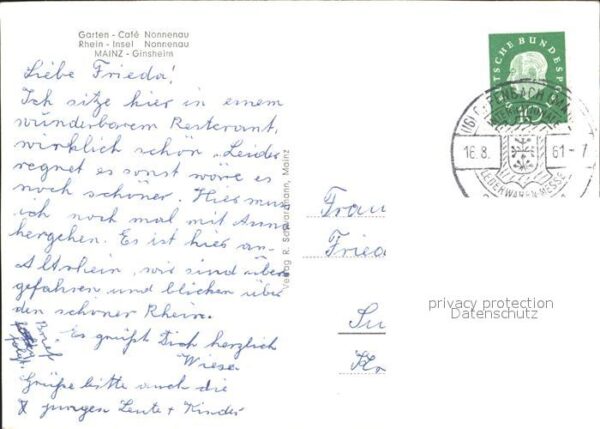 Garten - Café Nonnenau
Rhein - Insel Nonnenau
MAINZ - Ginsheim
Liebe Frieda!
Ich sitze hier in einem
wunderbarem Resterant,
wirklich schön. Leider
regnet es sonst wäre es
noch schöner. Hier muß
ich noch mal mit Anna
hergehen. Es ist hier am
Altrhein, wir sind über
gefahren und blicken über
den schöner Rhein.
Es grüßt Dich herzlich
Wiesa
Grüße bitte auch die
jungen Leute + Kinder
Brief
folgt.
Verlag R. Schwardmann, Mainz
Frau
Fried
DEUTSCHE BUNDESPOST
10
(16) OFFENBACH (MAIN
16.8. 61 - 7
LEDERWAREN-MESSE
privacy protection
Datenschutz